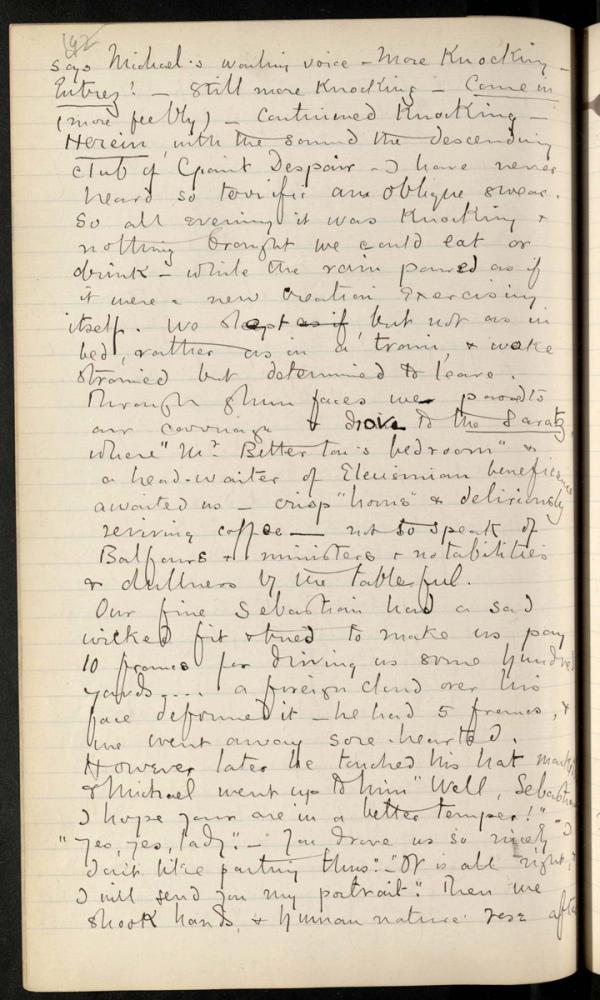 142
says Michael's wailing voice – More Knocking –
Entrez! – Still more Knocking – Come in
(more feebly) – Continued Knocking –
Herein, with the sound the descending
club of Giant Despair – I have never
heard so terrific an oblique swear.
So all evening it was Knocking &
nothing brought we could eat or
drink – while the rain poured as if
it were a new Creation Exercising
itself. We slept as if, but not as in
bed, rather as in a train, & woke
strained but determined to leave.
Through glum faces we passed to
our carriage & drove to the Saratz
where "Mr. Betterton's bedroom" &
a head-waiter of Eleusinian beneficence
awaited us – crisp "horns" & deliriously
reviving coffee – not to speak of
Balfours & ministers & notabilities
& dullness by the tableful.
Our fine Sebastian had a sad
wicked fit & tried to make us pay
10 francs for driving us some hundred
yards.... a foreign cloud over his
face deformed it – he had 5 francs, &
we went away sore-hearted.
However later he touched his hat
& Michael went up to him "Well, Sebastian
I hope you are in a better temper!" –
"Yes, yes, lady." – "You drove us so nicely I
don't like parting thus." – "It is all right,
I will send you my portrait." Then we
shook hands, & human nature rose after